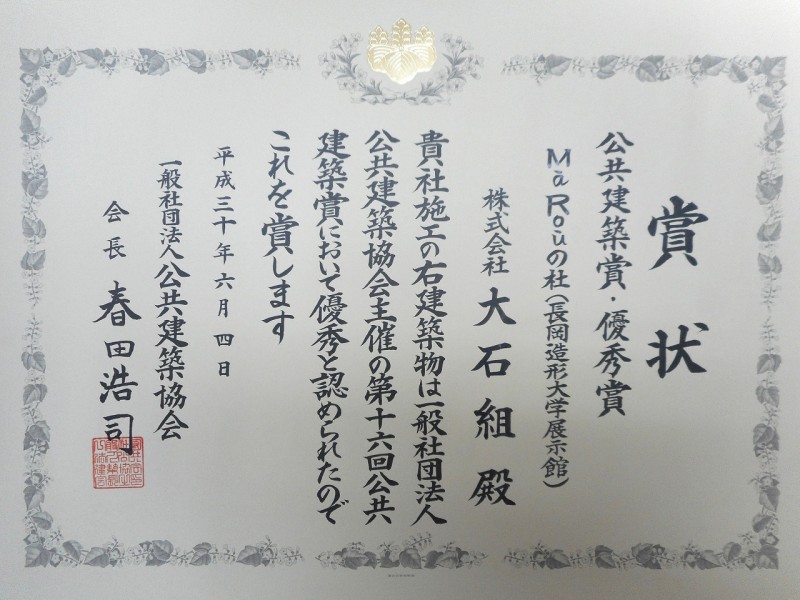 賞状
公共建築賞・優秀賞
MaRouの杜(長岡造形大学展示館)
株式会社 大石組 殿
貴社施工の右建築物は一般社団法人
公共建築協会主催の第十六回公共
建築賞において優秀と認められたので
これを賞します
平成三十年六月四日
一般社団法人公共建築協会
会長 春田浩司